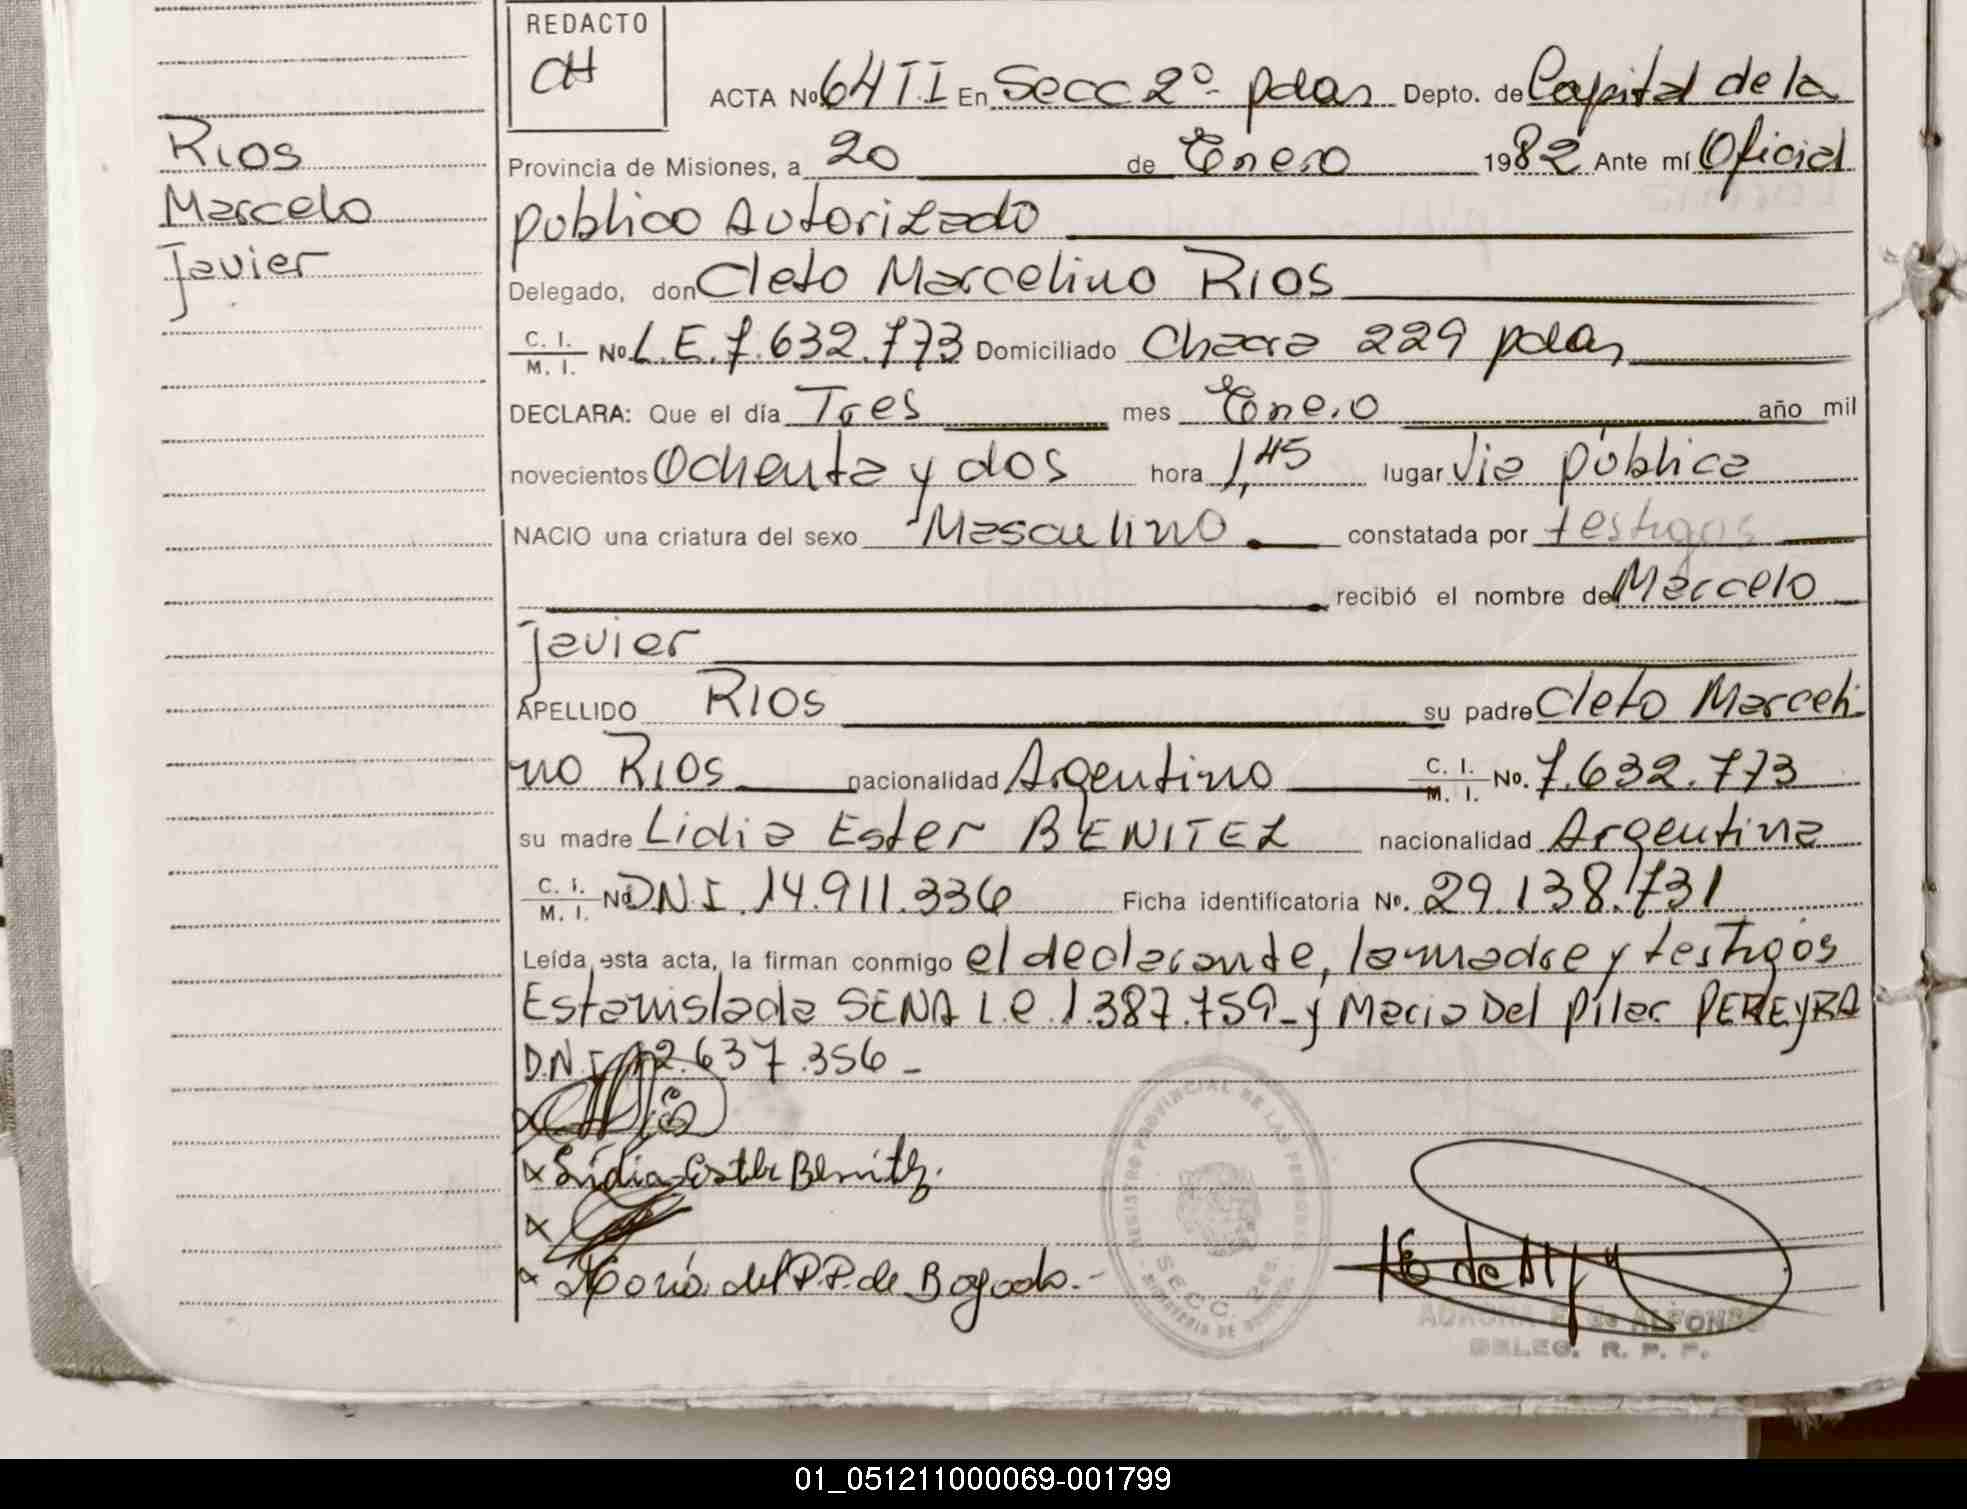 REDACTO
CH
ACTA Nº 64 T.I En Secc 2º- pdas Depto. de Capital de la
Rios
Marcelo
Javier
Provincia de Misiones, a 20 de Enero 1982 Ante mí Oficial
publico Autorizado
Delegado, don Cleto Marcelino Rios
C. I. / M. I. Nº L.E. 7.632.773 Domiciliado Chacra 229 pdas
DECLARA: Que el día Tres mes Enero año mil
novecientos Ochenta y dos hora 1,45 lugar Via pública
NACIO una criatura del sexo Masculino. constatada por testigos
recibió el nombre de Marcelo
Javier
APELLIDO RIOS su padre Cleto Marceli
no Rios nacionalidad Argentino C. I. / M. I. Nº. 7.632.773
su madre Lidia Ester BENITEZ nacionalidad Argentina
C. I. / M. I. Nº DN.I. 14.911.336 Ficha identificatoria Nº. 29.138.731
Leída esta acta, la firman conmigo el declarante, la madre y testigos
Estanislada SENA L.e. 1.387.759- y Maria Del Pilar PEREYRA
D.N.I 12.637.356-
x
x Lidia Ester Benitez.
x
x María del P.P. de Bogado.-
REGISTRO PROVINCIAL DE LAS PERSONAS
SECC. 2da.
AURORA DE ALFONSO
DELEG. R. P. P.
01_051211000069-001799